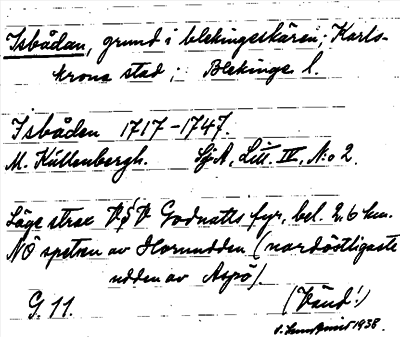 Isbådan, grund i blekingeskären; Karls-
krona stad; Blekinge l.
Isbåden 1717-1747.
M. Küllenbergh. SjA, Litt. IV, N:o 2.
Läge strax V§V Godnatts fyr, bel. 2,6 km.
NÖ spetsen av Hornudden (nordöstligaste
udden av Aspö).
G. 11. (Vänd!)
1938.